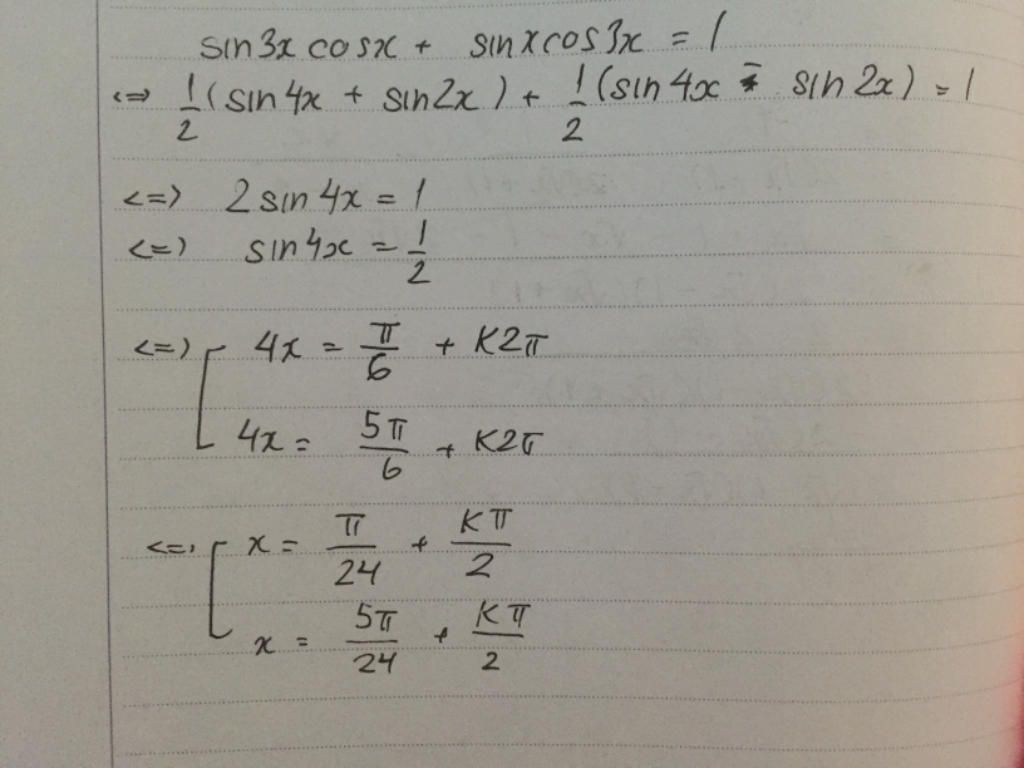 sin3x cosx + sinxcos3x = 1
<=> 1/2 (sin 4x + sin2x) + 1/2 (sin 4x - sin 2x) = 1
<=> 2 sin 4x = 1
<=> sin4x = 1/2
<=> [ 4x = π/6 + K2π
4x = 5π/6 + K2π
<=> [ x = π/24 + Kπ/2
x = 5π/24 + Kπ/2